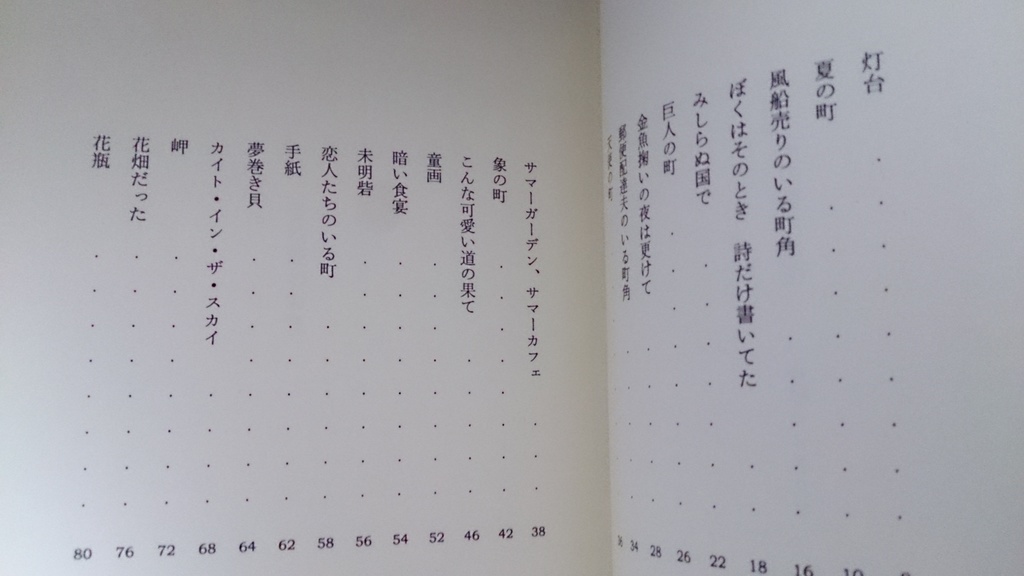 灯台
夏の町 10
風船売りのいる町角 16
ぼくはそのとき 詩だけ書いてた 18
みしらぬ国で 22
巨人の町 26
金魚掬いの夜は更けて 28
郵便配達夫のいる町角 34
天使の町 36
サマーガーデン、サマーカフェ 38
象の町 42
こんな可愛い道の果て 46
童画 52
暗い食宴 54
未明砦 56
恋人たちのいる町 58
手紙 62
夢巻き貝 64
カイト・イン・ザ・スカイ 68
岬 72
花畑だった 76
花瓶 80